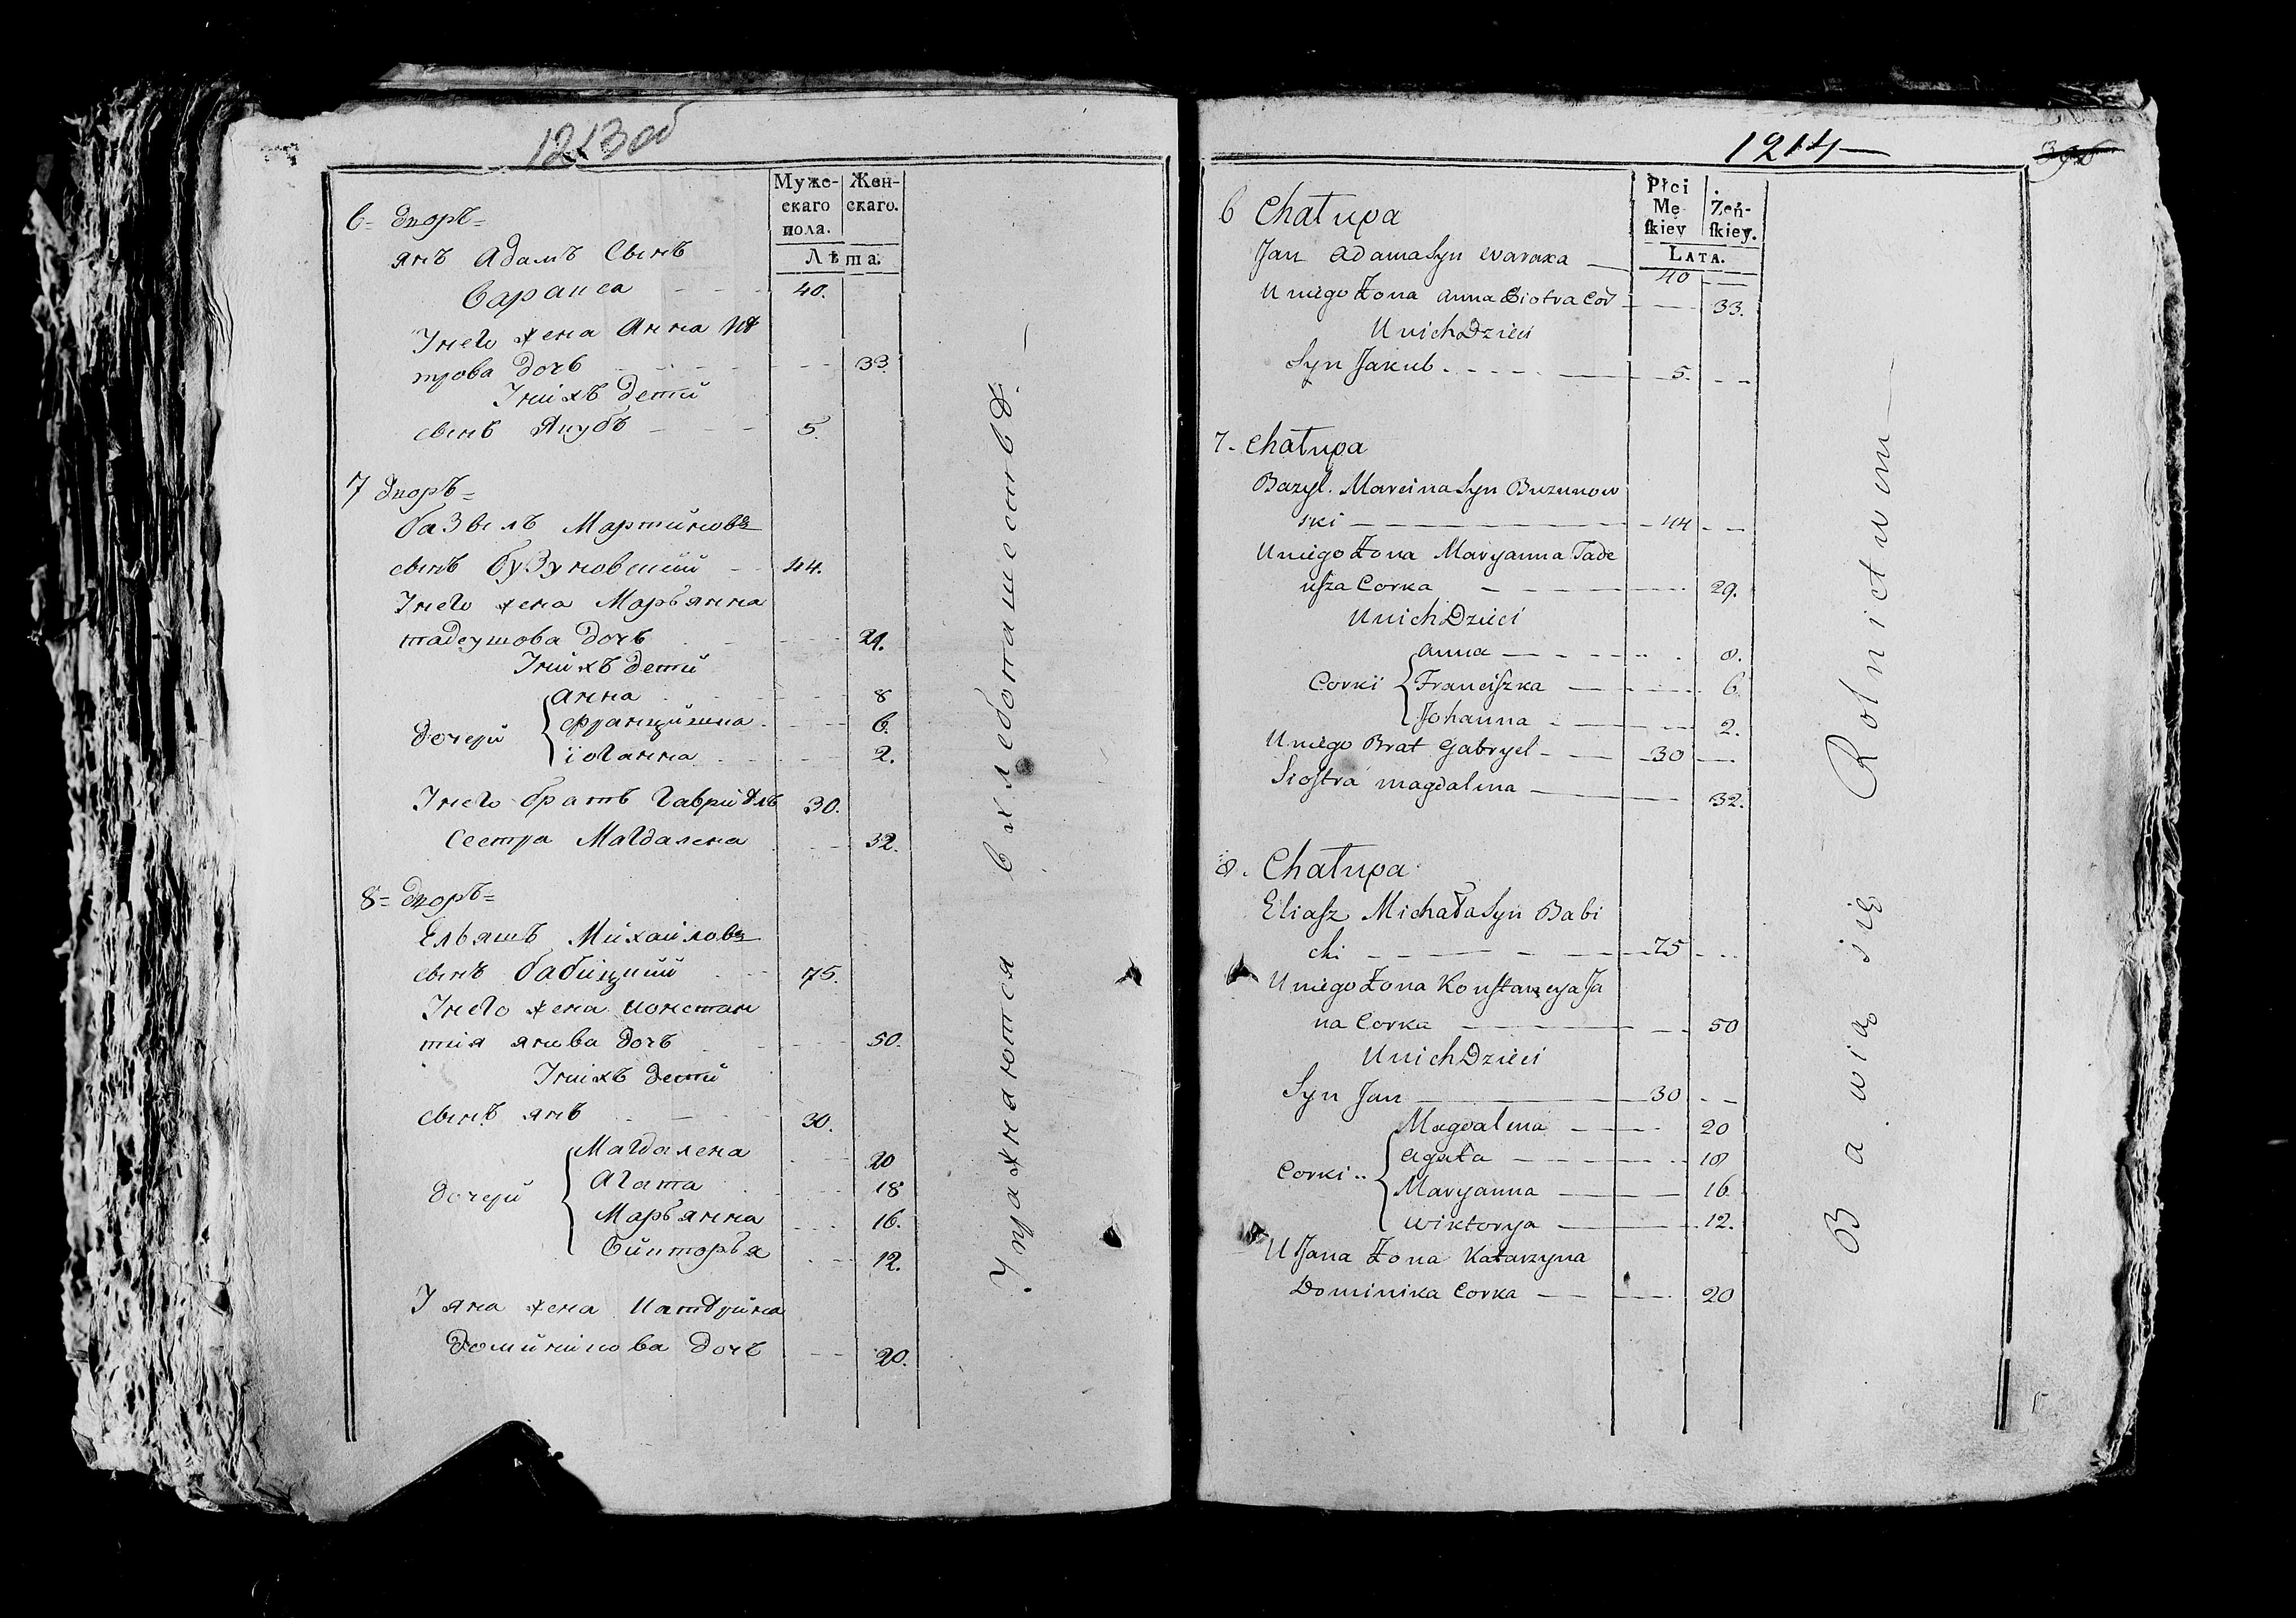 1213 об
Муже-
скаго
пола.
Жен-
скаго.
Лѣта.
6= дворъ=
янъ адамъ Сынъ
Варакса 40.
Унего жена Анна пѣ
трова дочь 33.
Унихъ дети
сынъ Якубъ 5.
7 дворъ=
базыль Мартиновъ
сынъ бузуновский 44.
Унего жена Марьянна
тадеушова дочь 29.
Унихъ дети
дочери
анна 8
францишка 6.
іоганна 2.
Унего братъ Гавриѣлъ 30.
Сестра Магдалена 32.
8= дворъ=
Ельяшъ Михаиловъ
сынъ бабицкий 75.
Унего жена констан
тия янова дочь 50.
Унихъ дети
сынъ янъ 30.
дочери
Магдалена 20
Агата 18
Марьянна 16.
Викторья 12.
У яна жена Катерина
доминикова дочь 20.
Упражняются в хлебопашестве.
1214
Płci
Mę-
skiey
Żeń-
skiey.
LATA.
6 Chałupa
Jan Adama Syn Waraxa 40
U niego Żona Anna Piotra Cor 33.
U nich Dzieci
Syn Jakub 5.
7. Chałupa
Bazyl. Marcina Syn Buzunow
ski 44
U niego Żona Maryanna Tade
usza Corka 29.
U nich Dzieci
Corki
Anna 8.
Franciszka 6.
Johanna 2.
U niego Brat Gabryel 30
Siostra Magdalena 32.
8. Chałupa
Eliasz Michała Syn Babi
cki 75
U niego Żona Konstancya Ja
na Corka 50
U nich Dzieci
Syn Jan 30
Corki
Magdalena 20
Agata 18
Maryanna 16
Wiktorya 12.
U Jana Żona Katarzyna
Dominika Corka 20
Bawią się Rolnictwem